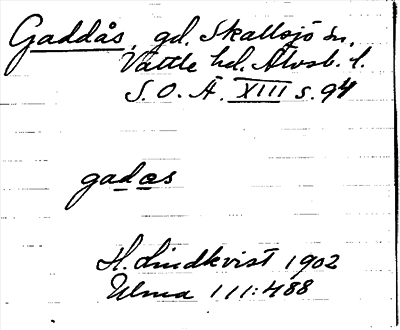 Gaddås, gd. Skallsjö sn.
Vättle hd. Älvsb. l.
S. O. Ä. XIII s. 94
gadas
H. Lindkvist 1902
Ulma 111:488